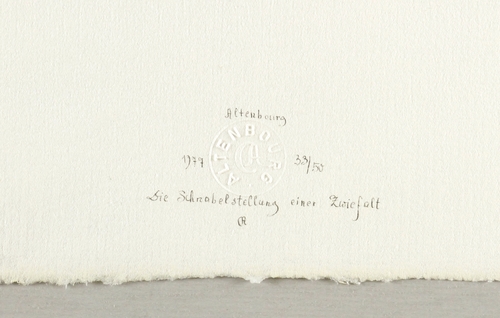 Altenbourg
ALTENBOURG
1977 33/50
Die Schnabelstellung einer Zwiefalt